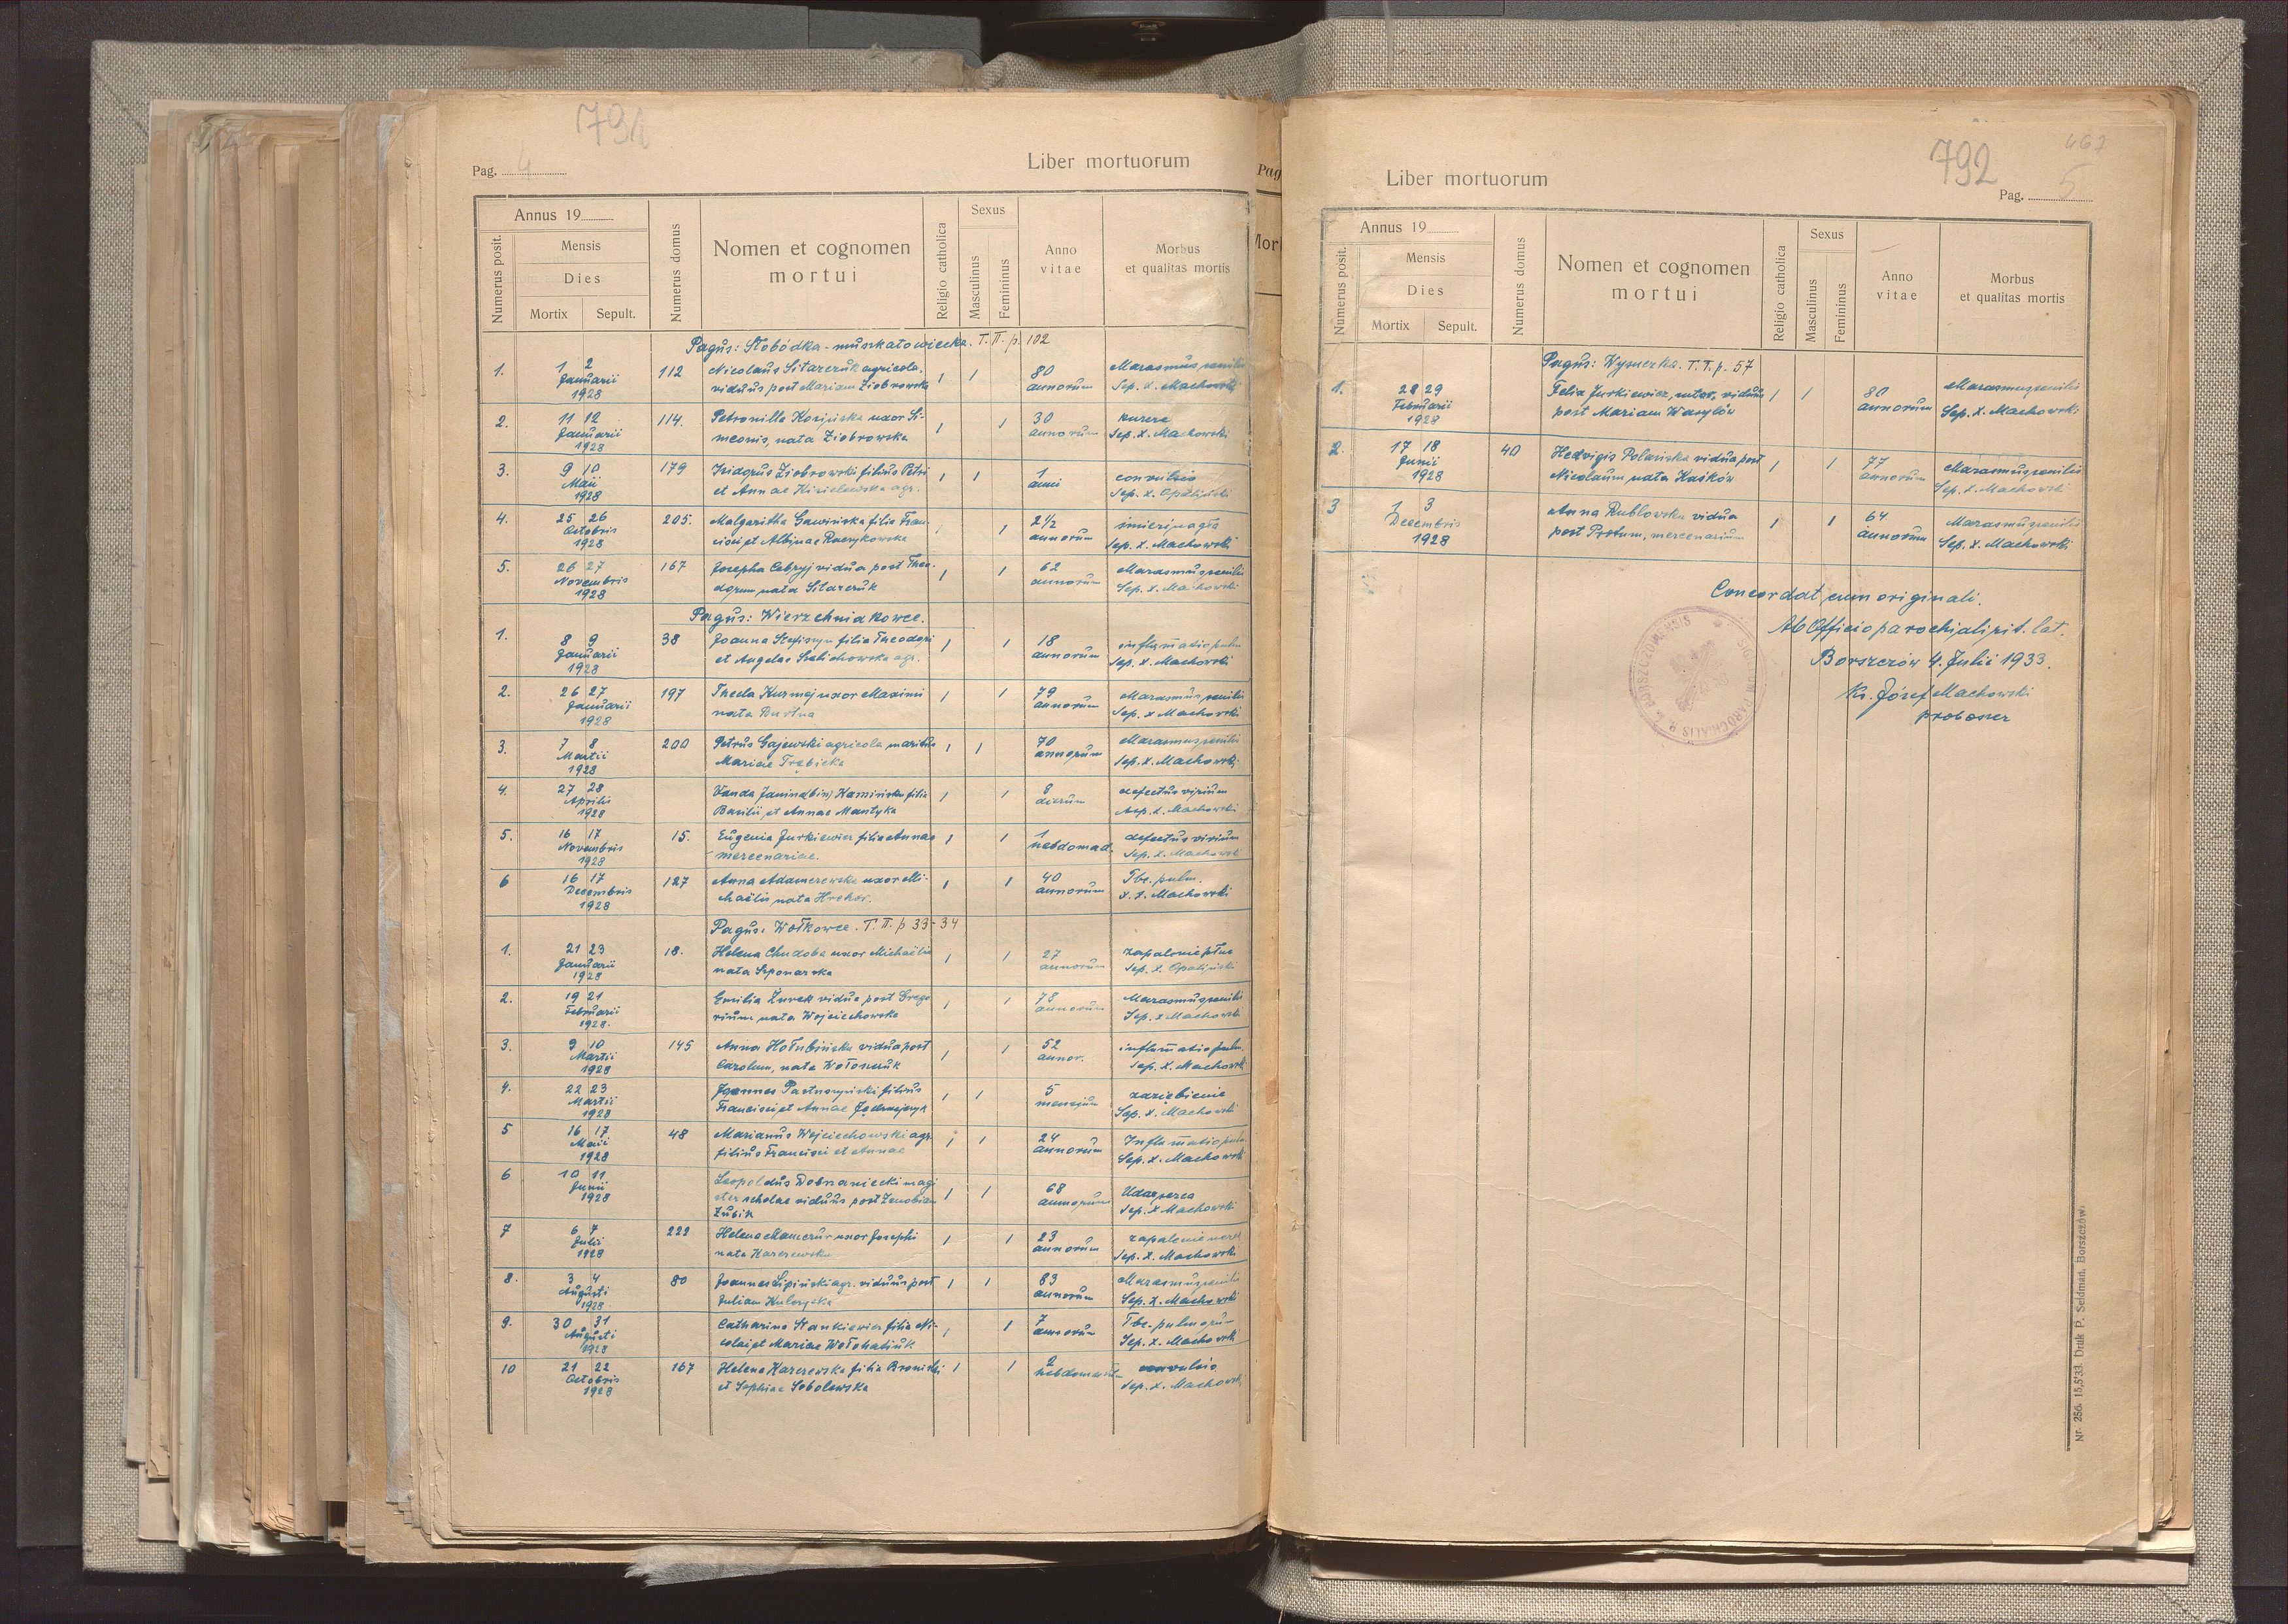 791
Pag. 4
Liber mortuorum
Annus 19
Numerus posit.
Mensis
Dies
Mortix Sepult.
Numerus domus
Nomen et cognomen
mortui
Religio catholica
Sexus
Masculinus
Femininus
Anno
vitae
Morbus
et qualitas mortis
Pagus: Słobódka-muszkatowiecka. T. II. p. 102
1. 1 2 Januarii 1928 112 Nicolaus Sitarczuk agricola, 1 1 80 annorum Marasmus senilis
viduus post Mariam Ziobrowska Sep. x. Machowski
2. 11 12 Januarii 1928 114. Petronilla uxor Si- 1 1 30 annorum
meonis, nata Ziobrowska Sep. x. Machowski
3. 9 10 Maii 1928 179 Isidorus Ziobrowski filius Petri 1 1 1 anni convulsio
et Annae Kisielewska agr. Sep. x. Opaliński
4. 25 26 Octobris 1928 205. Malgaritha Gawińska filia Fran- 1 2½ annorum śmierć nagła
cisci et Albinae Raczykowska Sep. x. Machowski
5. 26 27 Novembris 1928 167 Josepha Cebryj vidua post Theo- 1 1 62 annorum Marasmus senilis
dorum nata Sitarczuk Sep. x. Machowski
Pagus: Wierzchniakowce.
1. 8 9 Januarii 1928 38 Joanna filia Theodori 1 1 18 annorum inflamatio pulm
et Angelae agr. Sep. x. Machowski
2. 26 27 Januarii 1928 197 Thecla Kuzmej uxor Maximi 1 1 79 annorum Marasmus senilis
nata Sep. x Machowski
3. 7 8 Martii 1928 200 Petrus Gajewski agricola maritus 1 1 70 annorum Marasmus senilis
Mariae Trębicka Sep. x. Machowski
4. 27 28 Aprilis 1928 Vanda Janina (bin) Kamińska filia 1 1 8 dierum defectus virium
Basilii et Annae Mantyka Sep. x. Machowski
5. 16 17 Novembris 1928 15. Eugenia Jurkiewicz filia Annae 1 1 1 hebdomad. defectus virium
mercenariae. Sep. x. Machowski
6 16 17 Decembris 1928 127 Anna Adamczewska uxor Mi- 1 1 40 annorum Tbc. pulm.
chaëlis nata Hrehor. Machowski
Pagus: Wołkowce. T. II. p 33-34
1. 21 23 Januarii 1928 18. Helena Chudoba uxor Michaëlis 1 1 27 annorum zapalenie płuc
nata Szponarska Sep. x. Opaliński
2. 19 21 Februarii 1928. Emilia Żurek vidua post Grego 1 1 78 annorum Marasmus senilis
rium nata Wojciechowska Sep. x Machowski
3. 9 10 Martii 1928 145 Anna Hołubińska vidua post 1 1 52 annor. inflamatio pulm.
Carolum, nata Wołoszczuk Sep. x. Machowski
4. 22 23 Martii 1928 Joannes Pastuszyński filius 1 1 5 mensium zaziębienie
Francisci et Annae Sep. x. Machowski
5 16 17 Maii 1928 48 Marianus Wojciechowski agr. 1 1 24 annorum Inflamatio pulm.
filius Francisci et Annae Sep. x. Machowski
6 10 11 Junii 1928 Leopoldus Dobraniecki magi 1 1 68 annorum Udar serca
ster scholae viduus post Zenobiam Sep. x Machowski
Zubik
7 6 7 Julii 1928 222 Helena Mamczur uxor Josephi 1 1 23 annorum zapalenie
nata Karczewska Sep. x. Machowski
8. 3 4 Augusti 1928 80 Joannes Lipiński agr. viduus post 1 1 83 annorum Marasmus senilis
Juliam Kulczycka Sep. x. Machowski
9. 30 31 Augusti 1928 Catharina Stankiewicz filia Ni- 1 1 7 annorum Tbc-pulmorum
colai et Mariae Wołohatiuk Sep. x. Machowski
10 21 22 Octobris 1928 167 Helena Karczewska filia Broniski 1 1 2 convulsio
et Sophiae Sobolewska Sep. x. Machowski
Pag
Mor
792
463
Liber mortuorum
Pag. 5
Annus 19
Numerus posit.
Mensis
Dies
Mortix Sepult.
Numerus domus
Nomen et cognomen
mortui
Religio catholica
Sexus
Masculinus
Femininus
Anno
vitae
Morbus
et qualitas mortis
Pagus: Wysuczka. T. I. p. 57
1. 28 29 Februarii 1928 Felix Jurkiewicz, sutor, viduus 1 1 80 annorum Marasmus senilis
post Mariam Wasylów Sep. x. Machowski
2. 17 18 Junii 1928 40 Hedvigis Polańska vidua post 1 1 77 annorum Marasmus senilis
Nicolaum nata Kaśków Sep. x. Machowski
3 1 3 Decembris 1928 Anna Rublowska vidua 1 1 64 annorum Marasmus senilis
post Protum, mercenarium Sep. x. Machowski
Concordat cum originali.
Ab Officio parochiali rit. lat.
Borszczów 4. Julii 1933.
Ks. Józef Machowski
proboszcz
Nr. 256. 15,5'33. Druk P. Seidman, Borszczów.